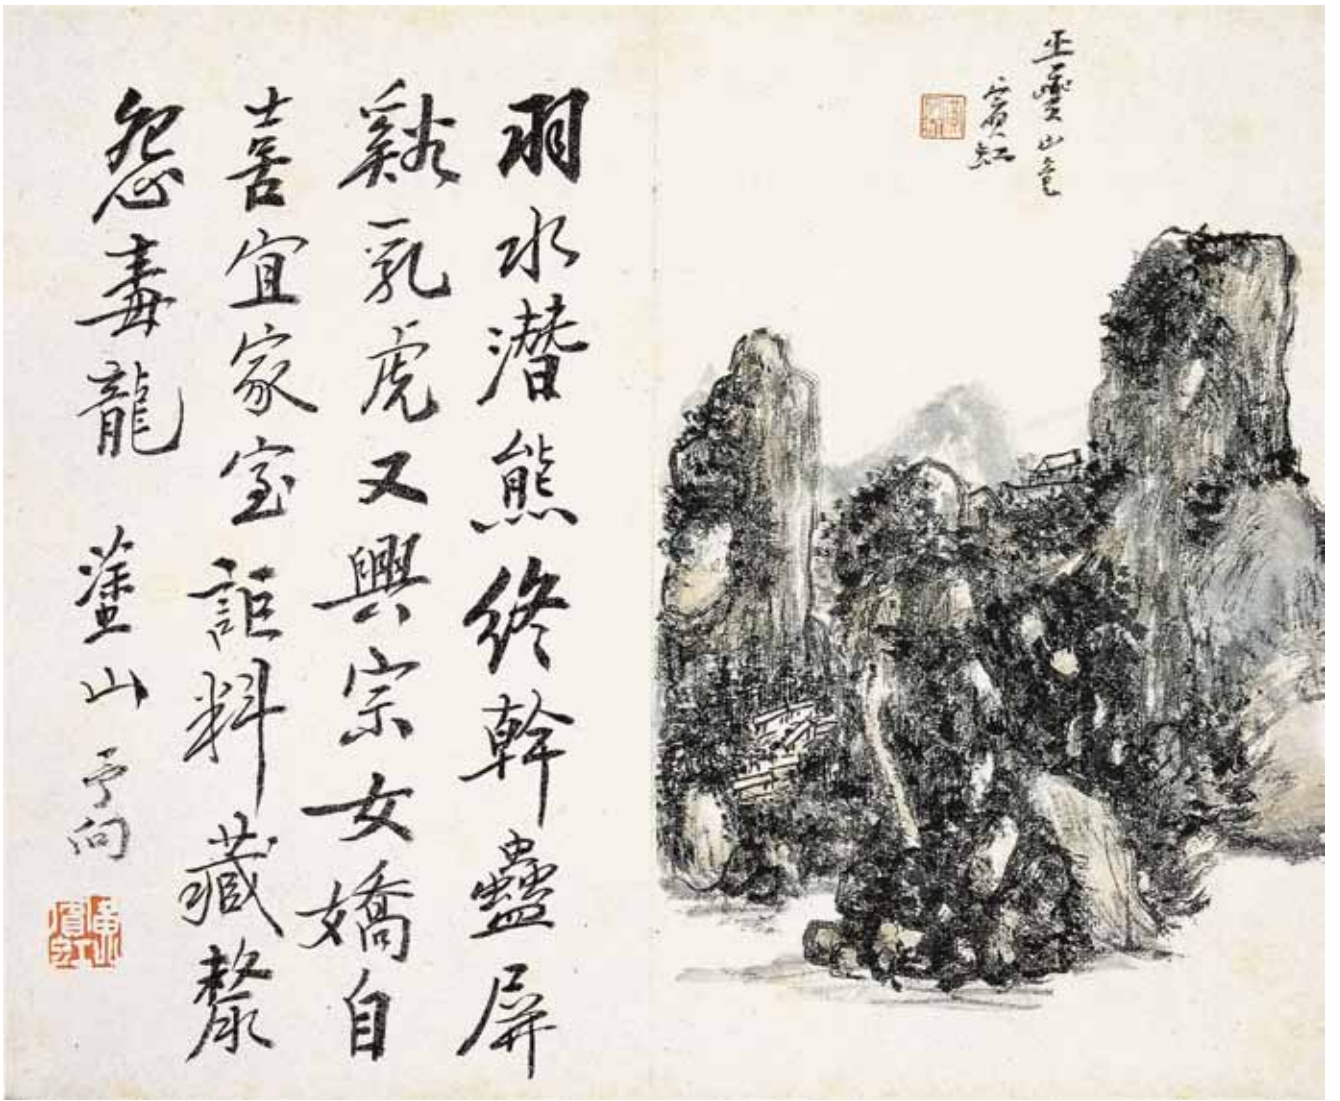 巫夔山色
賓虹
羽水潛熊終幹蠱屏
谿乳虎又興宗女嬌自
喜宜家室詎料藏漦
怨毒龍 塗山 予向
黃賓虹